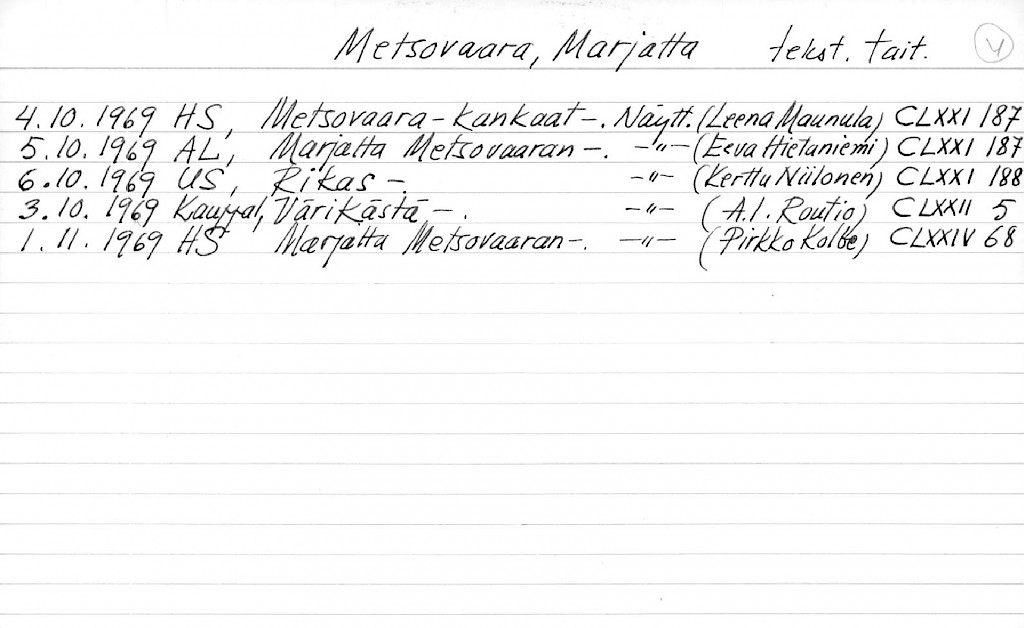 Metsovaara, Marjatta tekst. tait. 4
4.10.1969 HS, Metsovaara-kankaat-. Näytt. (Leena Maunula) CLXXI 187
5.10.1969 AL, Marjatta Metsovaaran -. -"- (Eeva Hietaniemi) CLXXI 187
6.10.1969 US, Rikas -. -"- (Kerttu Niilonen) CLXXI 188
3.10.1969 Kauppal, Värikästä -. -"- (A.I. Routio) CLXXII 5
1.11.1969 HS Marjatta Metsovaaran -. -"- (Pirkko Kolbe) CLXXIV 68